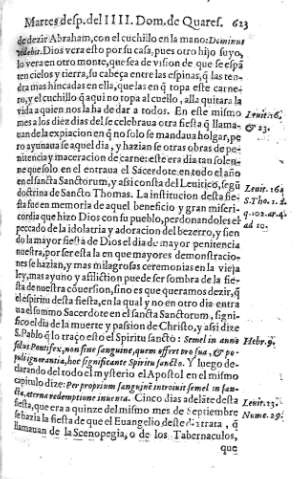 Martes desp. del IIII. Dom. de Quares. 623
de dezir Abraham, con el cuchillo en la mano: Dominus
videbit. Dios vera esto por su casa, pues otro hijo suyo,
lo vera en otro monte, que sea de vision de que se espã
ten cielos y tierra, su cabeça entre las espinas, q̃ las ten-
dra mas hincadas en ella, que las en q̃ topa este carne-
ro, y el cuchillo q̃ aqui no topa al cuello, alla quitara la
vida a quien nos la ha de dar a todos. En este mismo
mes a los diez dias del se celebraua otra fiesta q̃ llama-
uan de la expiacion en q̃ no solo se mandaua holgar, pe
ro ayunaua se aquel dia, y hazian se otras obras de pe-
nitencia y maceracion de carne: este era dia tan solen-
ne que solo en el entraua el Sacerdote en todo el año
en el sancta Sanctorum, y assi consta del Leuitico, segũ
doctrina de Sancto Thomas. La institucion desta fie-
sta fue en memoria de aquel beneficio y gran miseri-
cordia que hizo Dios con su pueblo, perdonandoles el
peccado de la idolatria y adoracion del bezerro, y sien
do la mayor fiesta de Dios el dia de mayor penitencia
nuestra, por ser esta la en que mayores demonstracio-
nes se hazian, y mas milagrosas ceremonias en la vieja
ley, mas ayuno y afliction puede ser sombra de la fie-
sta de nuestra conuersion, sino es que queramos dezir, q̃
el espiritu desta fiesta, en la qual y no en otro dia entra
ua el summo Sacerdote en el sancta Sanctorum, signi-
fico el dia de la muerte y passion de Christo, y assi dize
S. Pablo q̃ lo traço esto el Spiritu sancto: Semel in anno
solus Pontifex, non sine sanguine, quem offert pro sua, & po-
puli ignorantia, hoc significante Spiritu sancto. Y luego de-
darando del todo el mysterio el Apostol en el mismo
capitulo dize: Per proprium sanguinẽ introiuit semel in san-
cta, æterna redemptione inuenta. Cinco dias adelãte desta
fiesta, que era a quinze del mismo mes de Septiembre
se hazia la fiesta de que el Euangelio deste dia trata, q̃
llamauan de la Scenopegia, o de los Tabernaculos,
que
Leuit. 16.
& 23.
Leuit. 16.
S. Tho. 1. 2.
q. 102. ar. 4.
ad 10.
Hebr. 9.
Leuit. 23.
Nume. 29.